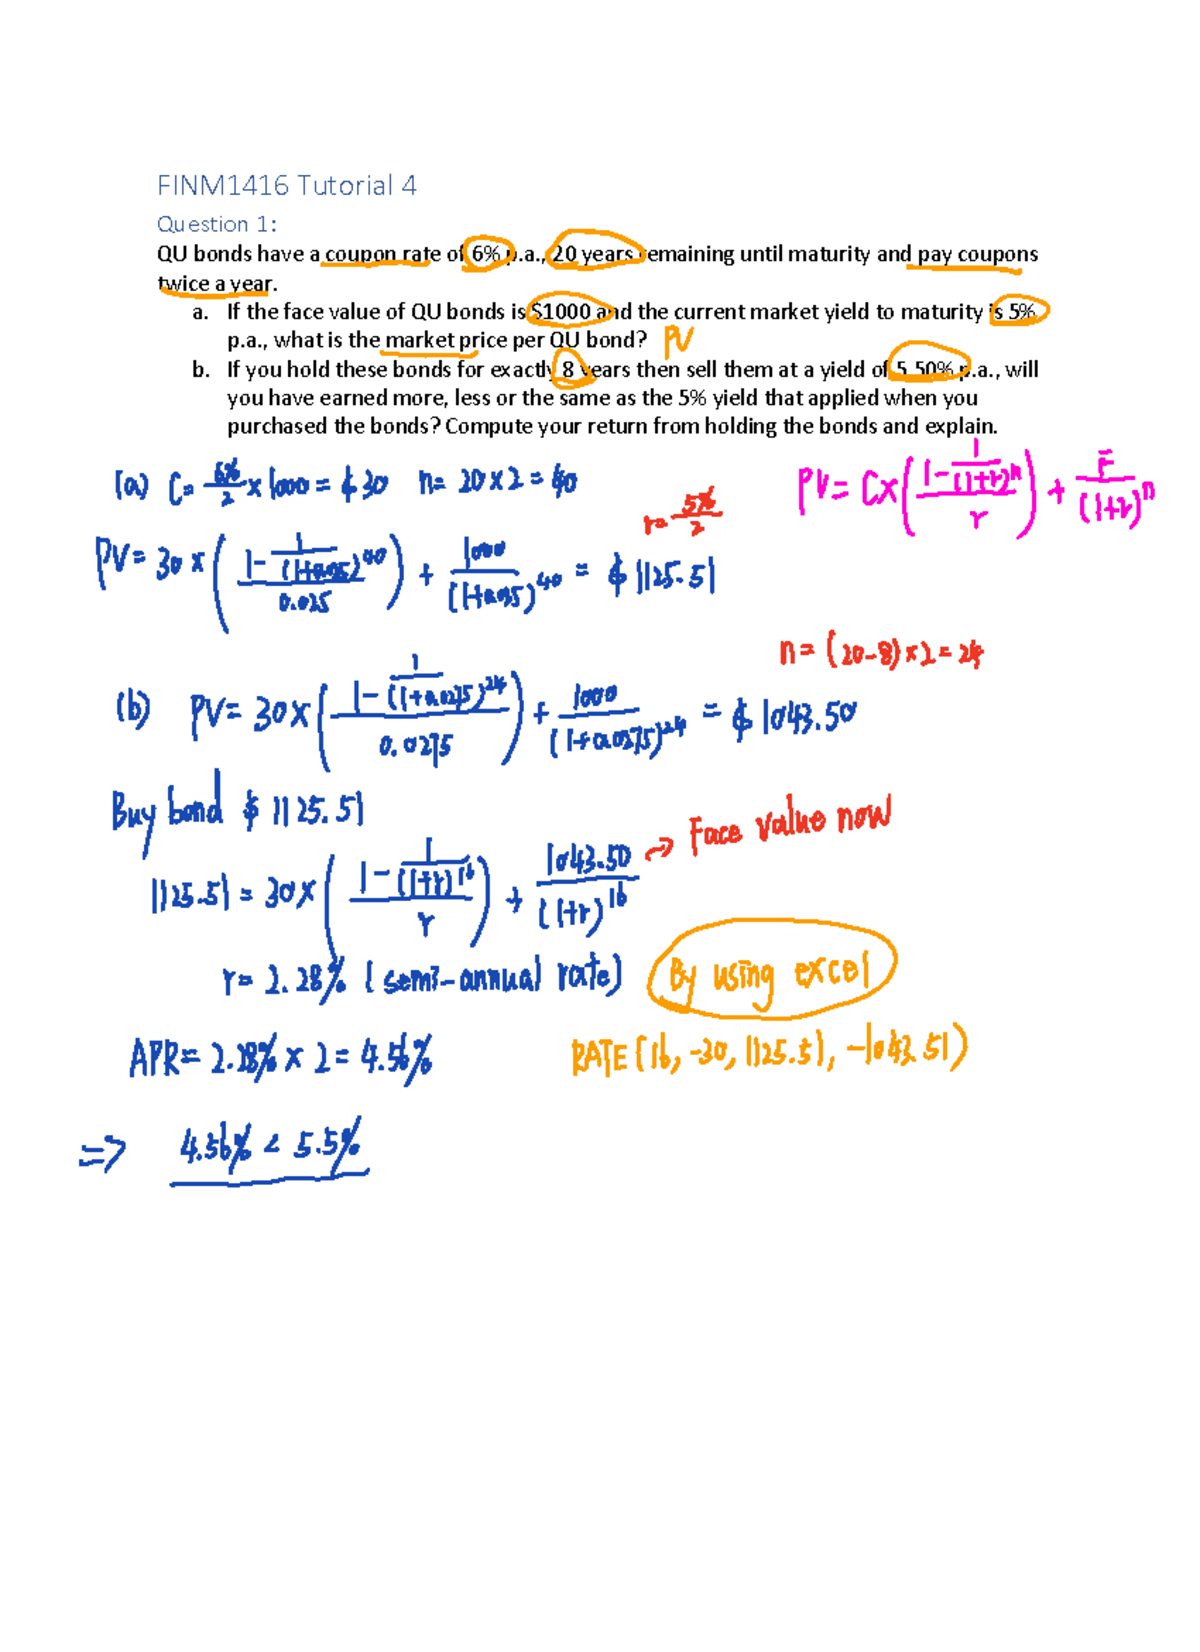 FINM1416 Tutorial 4
Question 1:
QU bonds have a coupon rate of 6% p.a., 20 years remaining until maturity and pay coupons
twice a year.
a. If the face value of QU bonds is $1000 and the current market yield to maturity is 5%
p.a., what is the market price per QU bond? PV
b. If you hold these bonds for exactly 8 years then sell them at a yield of 5.50% p.a., will
you have earned more, less or the same as the 5% yield that applied when you
purchased the bonds? Compute your return from holding the bonds and explain.
(a) C = 6%/2 × 1000 = $30 n = 20 × 2 = 40
r = 5%/2
PV = C × ((1 - 1/(1+r)^n)/r) + F/(1+r)^n
PV = 30 × ((1 - 1/(1+0.025)^40)/0.025) + 1000/(1+0.025)^40 = $1125.51
n = (20-8) × 2 = 24
(b) PV = 30 × ((1 - 1/(1+0.0275)^24)/0.0275) + 1000/(1+0.0275)^24 = $1043.50
Buy bond $1125.51
1125.51 = 30 × ((1 - 1/(1+r)^16)/r) + 1043.50/(1+r)^16 → Face value now
r = 2.28% (semi-annual rate) By using excel
APR = 2.28% × 2 = 4.56% RATE (16, -30, 1125.51, -1043.51)
⇒ 4.56% < 5.5%